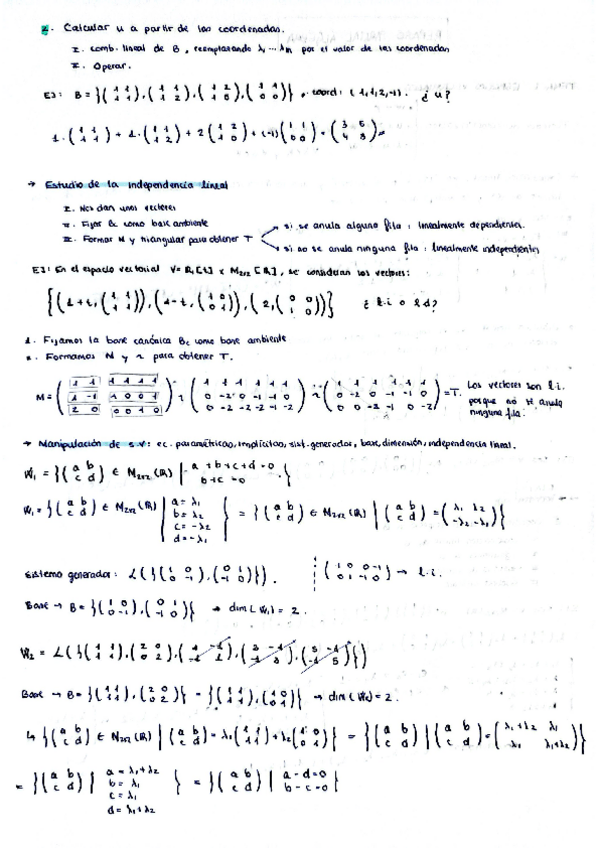 2. Calcular u a partir de las coordenadas.
I. Comb. lineal de B, reemplazando λ₁ ... λₘ por el valor de las coordenadas
II. Operar.
EJ: B = {(1 1; 1 1), (1 1; 1 2), (1 2; 1 0), (1 1; 0 0)}, coord: (1,1,2,-1). ¿u?
1·(1 1; 1 1) + 1·(1 1; 1 2) + 2(1 2; 1 0) + (-1)(1 1; 0 0) =
→ Estudio de la independencia lineal
I. Nos dan unos vectores
II. Fijar Bc como base ambiente
III. Formar M y triangular para obtener T
si se anula alguna fila: linealmente dependientes.
si no se anula ninguna fila: linealmente independientes
EJ: En el espacio vectorial V = P₁[t] x M₂ₓ₂[R], se consideran los vectores:
{(1+t, (1 1; 1 1)), (1-t, (1 0; 0 1)), (2, (0 0; 1 0))} ¿ l.i o l.d?
1. Fijamos la base canónica Bc como base ambiente
2. Formamos M y ~ para obtener T.
M = (1 1 1 1 1 1; 1 -1 1 0 0 1; 2 0 0 0 1 0) ~ (1 1 1 1 1 1; 0 -2 0 -1 -1 0; 0 -2 -2 -2 -1 -2) ~ (1 1 1 1 1 1; 0 -2 0 -1 -1 0; 0 0 -2 -1 0 -2) = T.
Los vectores son l.i. porque no se anula ninguna fila.
→ Manipulación de s.v: ec. paramétricas, implícitas, sist. generador, base, dimensión, independencia lineal.
W₁ = {(a b; c d) ∈ M₂ₓ₂(R) | a+b+c+d=0; b+c=0}
W₁ = {(a b; c d) ∈ M₂ₓ₂(R) | a=λ₁; b=λ₂; c=-λ₂; d=-λ₁} = {(a b; c d) ∈ M₂ₓ₂(R) | (a b; c d) = (λ₁ λ₂; -λ₂ -λ₁)}
Sistema generador: L({(1 0; 0 -1), (0 1; -1 0)}). (1 0 0 -1; 0 1 -1 0) → l.i.
Base → B = {(1 0; 0 -1), (0 1; -1 0)} → dim(W₁) = 2.
W₂ = L({(1 1; 1 1), (2 0; 0 2),
Base → B = {(1 1; 1 1), (2 0; 0 2)} = {(1 1; 1 1), (1 0; 0 1)} → dim(W₂) = 2.
↳ {(a b; c d) ∈ M₂ₓ₂(R) | (a b; c d) = λ₁(1 1; 1 1) + λ₂(1 0; 0 1)} = {(a b; c d) | (a b; c d) = (λ₁+λ₂ λ₁; λ₁ λ₁+λ₂)}
= {(a b; c d) | a=λ₁+λ₂; b=λ₁; c=λ₁; d=λ₁+λ₂} = {(a b; c d) | a-d=0; b-c=0}